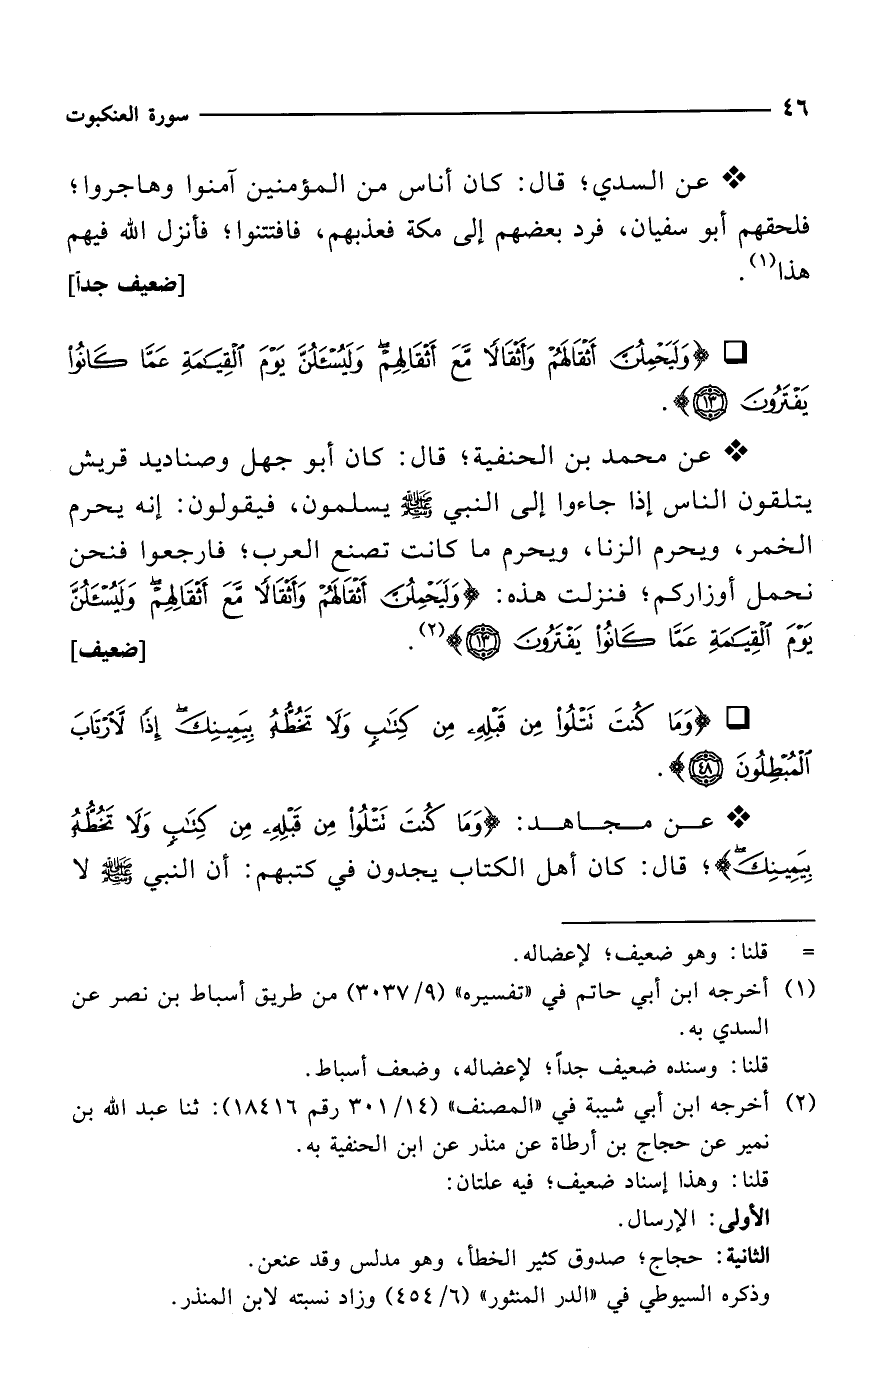 ٤٦ سورة العنكبوت
❖ عن السدي؛ قال: كان أناس من المؤمنين آمنوا وهاجروا؛
فلحقهم أبو سفيان، فرد بعضهم إلى مكة فعذبهم، فافتتنوا؛ فأنزل الله فيهم
هذا(١). [ضعيف جداً]
❑ ﴿وَلَيَحْمِلُنَّ أَثْقَالَهُمْ وَأَثْقَالًا مَّعَ أَثْقَالِهِمْ ۖ وَلَيُسْـَٔلُنَّ يَوْمَ ٱلْقِيَـٰمَةِ عَمَّا كَانُوا۟
يَفْتَرُونَ ١٣﴾.
❖ عن محمد بن الحنفية؛ قال: كان أبو جهل وصناديد قريش
يتلقون الناس إذا جاءوا إلى النبي ﷺ يسلمون، فيقولون: إنه يحرم
الخمر، ويحرم الزنا، ويحرم ما كانت تصنع العرب؛ فارجعوا فنحن
نحمل أوزاركم؛ فنزلت هذه: ﴿وَلَيَحْمِلُنَّ أَثْقَالَهُمْ وَأَثْقَالًا مَّعَ أَثْقَالِهِمْ ۖ وَلَيُسْـَٔلُنَّ
يَوْمَ ٱلْقِيَـٰمَةِ عَمَّا كَانُوا۟ يَفْتَرُونَ ١٣﴾(٢). [ضعيف]
❑ ﴿وَمَا كُنتَ تَتْلُوا۟ مِن قَبْلِهِۦ مِن كِتَـٰبٍ وَلَا تَخُطُّهُۥ بِيَمِينِكَ ۖ إِذًا لَّٱرْتَابَ
ٱلْمُبْطِلُونَ ٤٨﴾.
❖ عن مجاهد: ﴿وَمَا كُنتَ تَتْلُوا۟ مِن قَبْلِهِۦ مِن كِتَـٰبٍ وَلَا تَخُطُّهُۥ
بِيَمِينِكَ ۖ﴾؛ قال: كان أهل الكتاب يجدون في كتبهم: أن النبي ﷺ لا
= قلنا: وهو ضعيف؛ لإعضاله.
(١) أخرجه ابن أبي حاتم في «تفسيره» (٩/ ٣٠٣٧) من طريق أسباط بن نصر عن
السدي به.
قلنا: وسنده ضعيف جداً؛ لإعضاله، وضعف أسباط.
(٢) أخرجه ابن أبي شيبة في «المصنف» (١٤/ ٣٠١ رقم ١٨٤١٦): ثنا عبد الله بن
نمير عن حجاج بن أرطاة عن منذر عن ابن الحنفية به.
قلنا: وهذا إسناد ضعيف؛ فيه علتان:
الأولى: الإرسال.
الثانية: حجاج؛ صدوق كثير الخطأ، وهو مدلس وقد عنعن.
وذكره السيوطي في «الدر المنثور» (٦/ ٤٥٤) وزاد نسبته لابن المنذر.